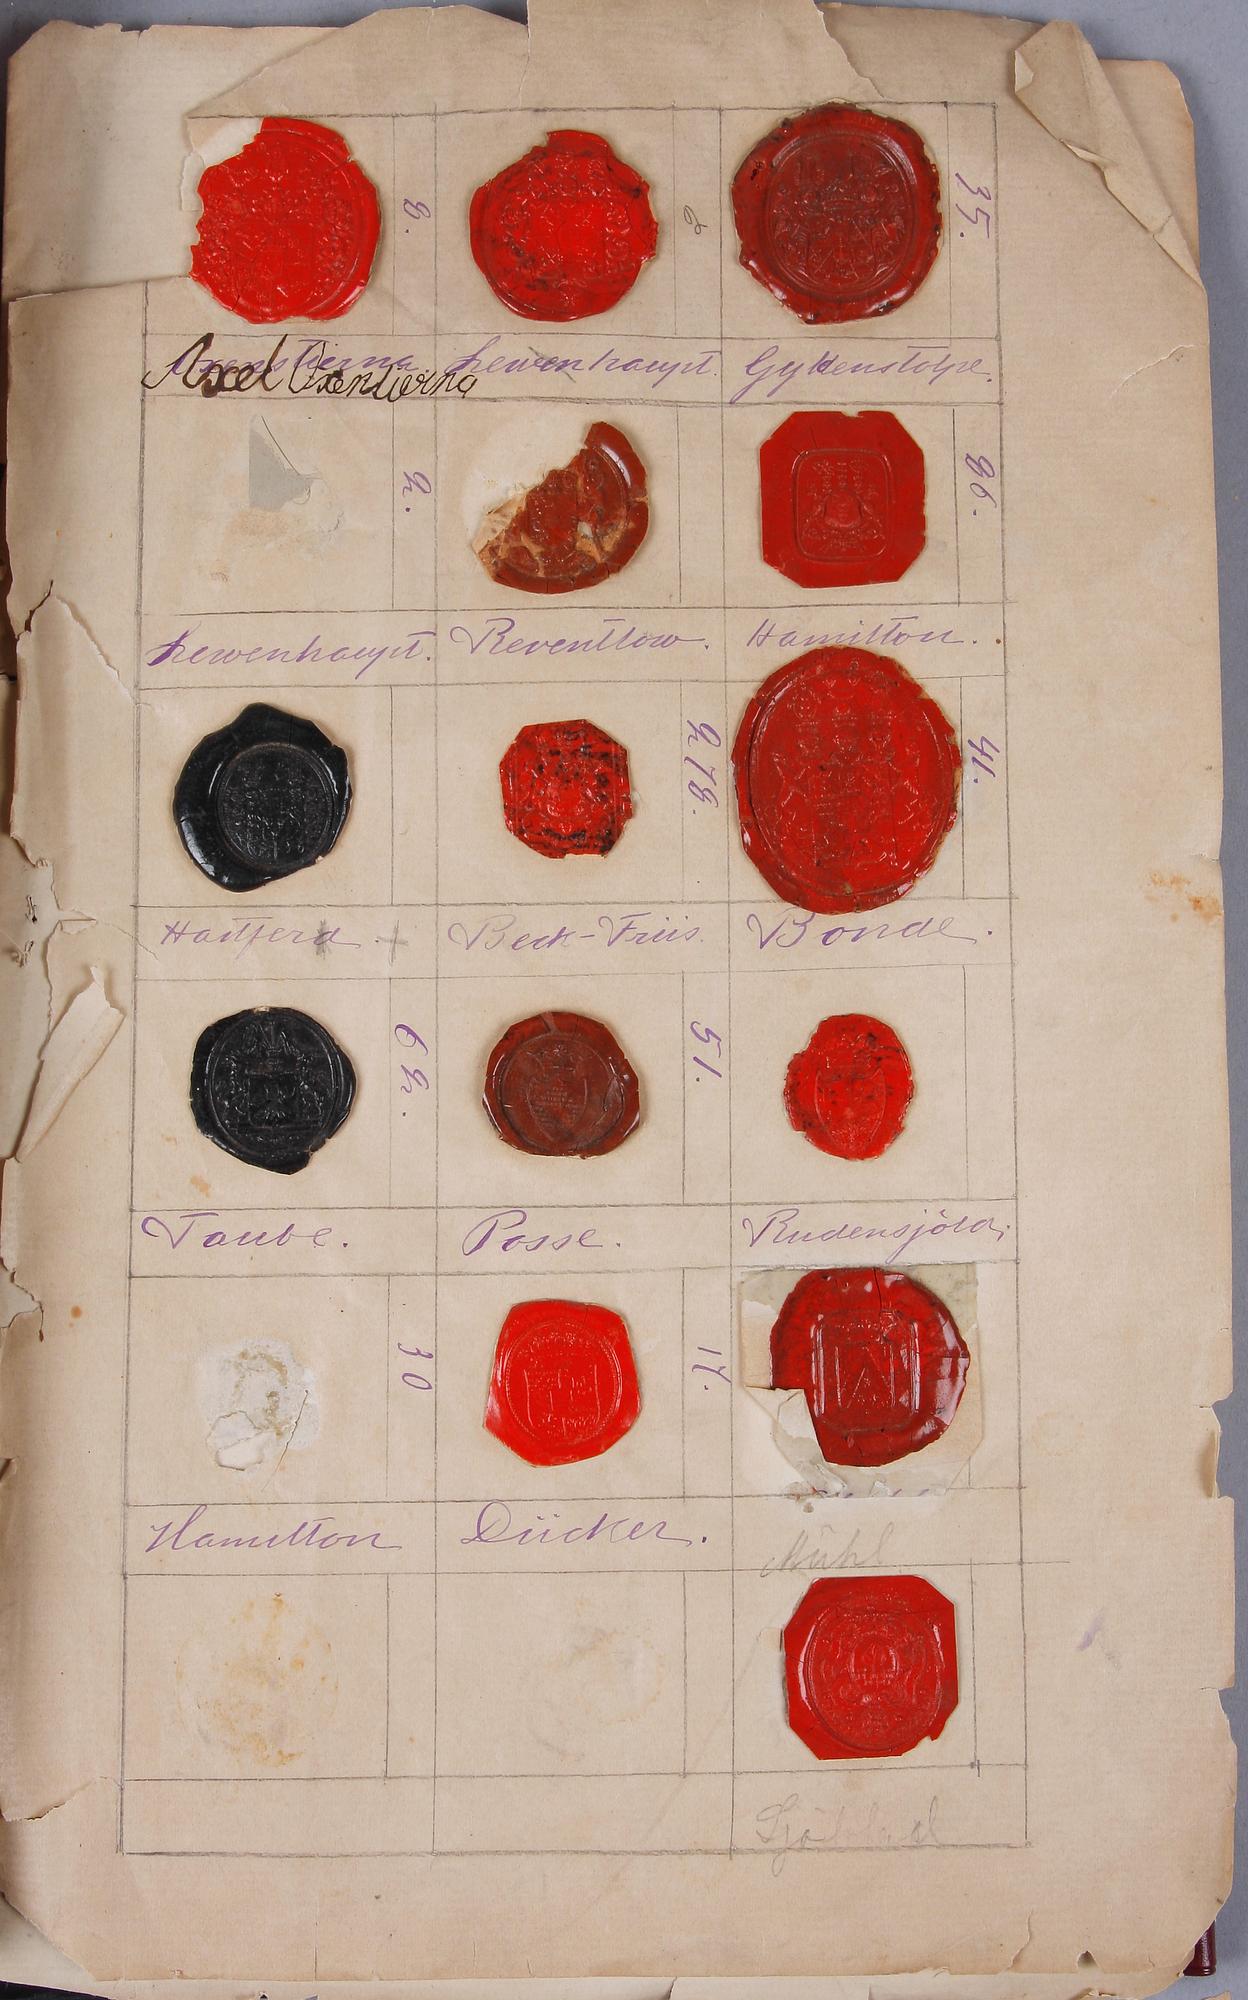 8.
2
35.
Oxenstierna
Axel Oxenstierna
Lewenhaupt.
Gyldenstolpe.
2.
86.
Lewenhaupt.
Reventlow.
Hamilton.
278.
41.
Hartferd.
Beck-Friis.
Bonde.
62.
51.
Taube.
Posse.
Rudensjöld.
30
17.
Hamilton
Dücker.
Mühl